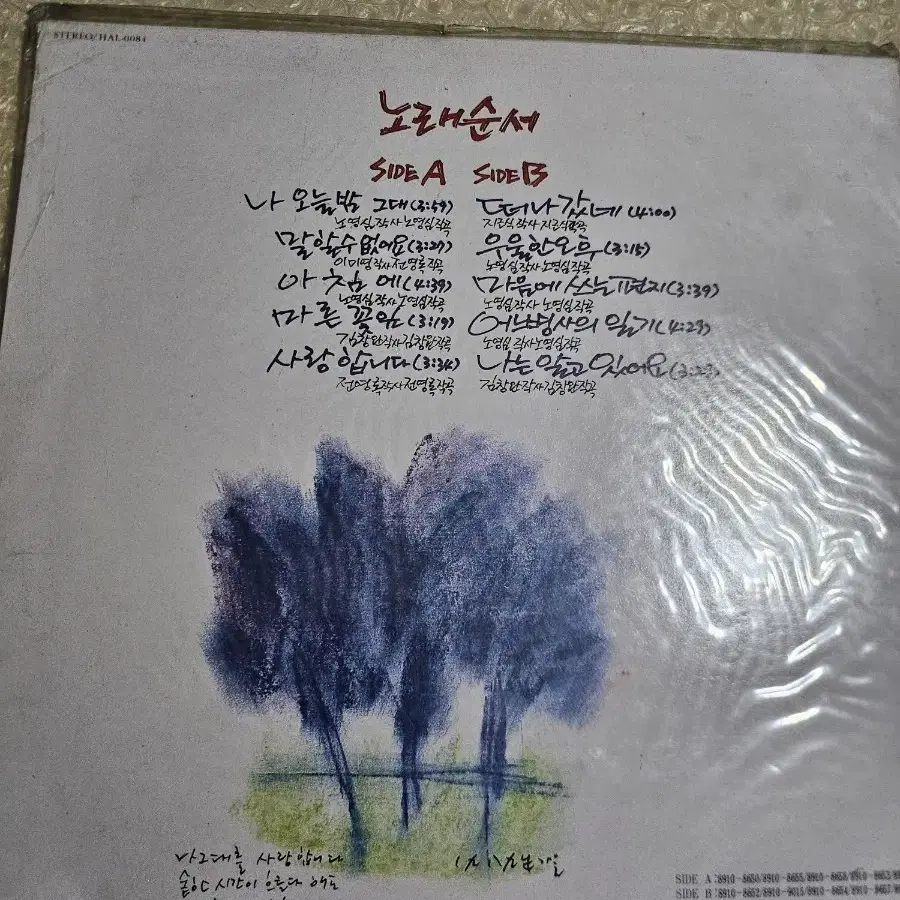 STEREO/HAL-0084
노래순서
SIDE A
나 오늘밤 그대 (3:59)
노영심 작사 노영심 작곡
말할 수 없어요 (3:27)
이미영 작사 전영록 작곡
아침에 (4:39)
노영심 작사 노영심 작곡
마른 꽃잎 (3:19)
김창완 작사 김창완 작곡
사랑합니다 (3:34)
전영록 작사 전영록 작곡
SIDE B
떠나갔네 (4:00)
작사 작곡
우울한 오후 (3:15)
노영심 작사 노영심 작곡
마음에 쓰는 편지 (3:39)
노영심 작사 노영심 작곡
어느 병사의 일기 (4:29)
노영심 작사 노영심 작곡
나는 알고 있어요
김창완 작사 김창완 작곡
나 그대를 사랑합니다
시간이 흐른다 해도
SIDE A :8910-8650/8910-8655/8910-8658/8910-8653/
SIDE B :8910-8652/8910-9015/8910-8654/8910-8657/